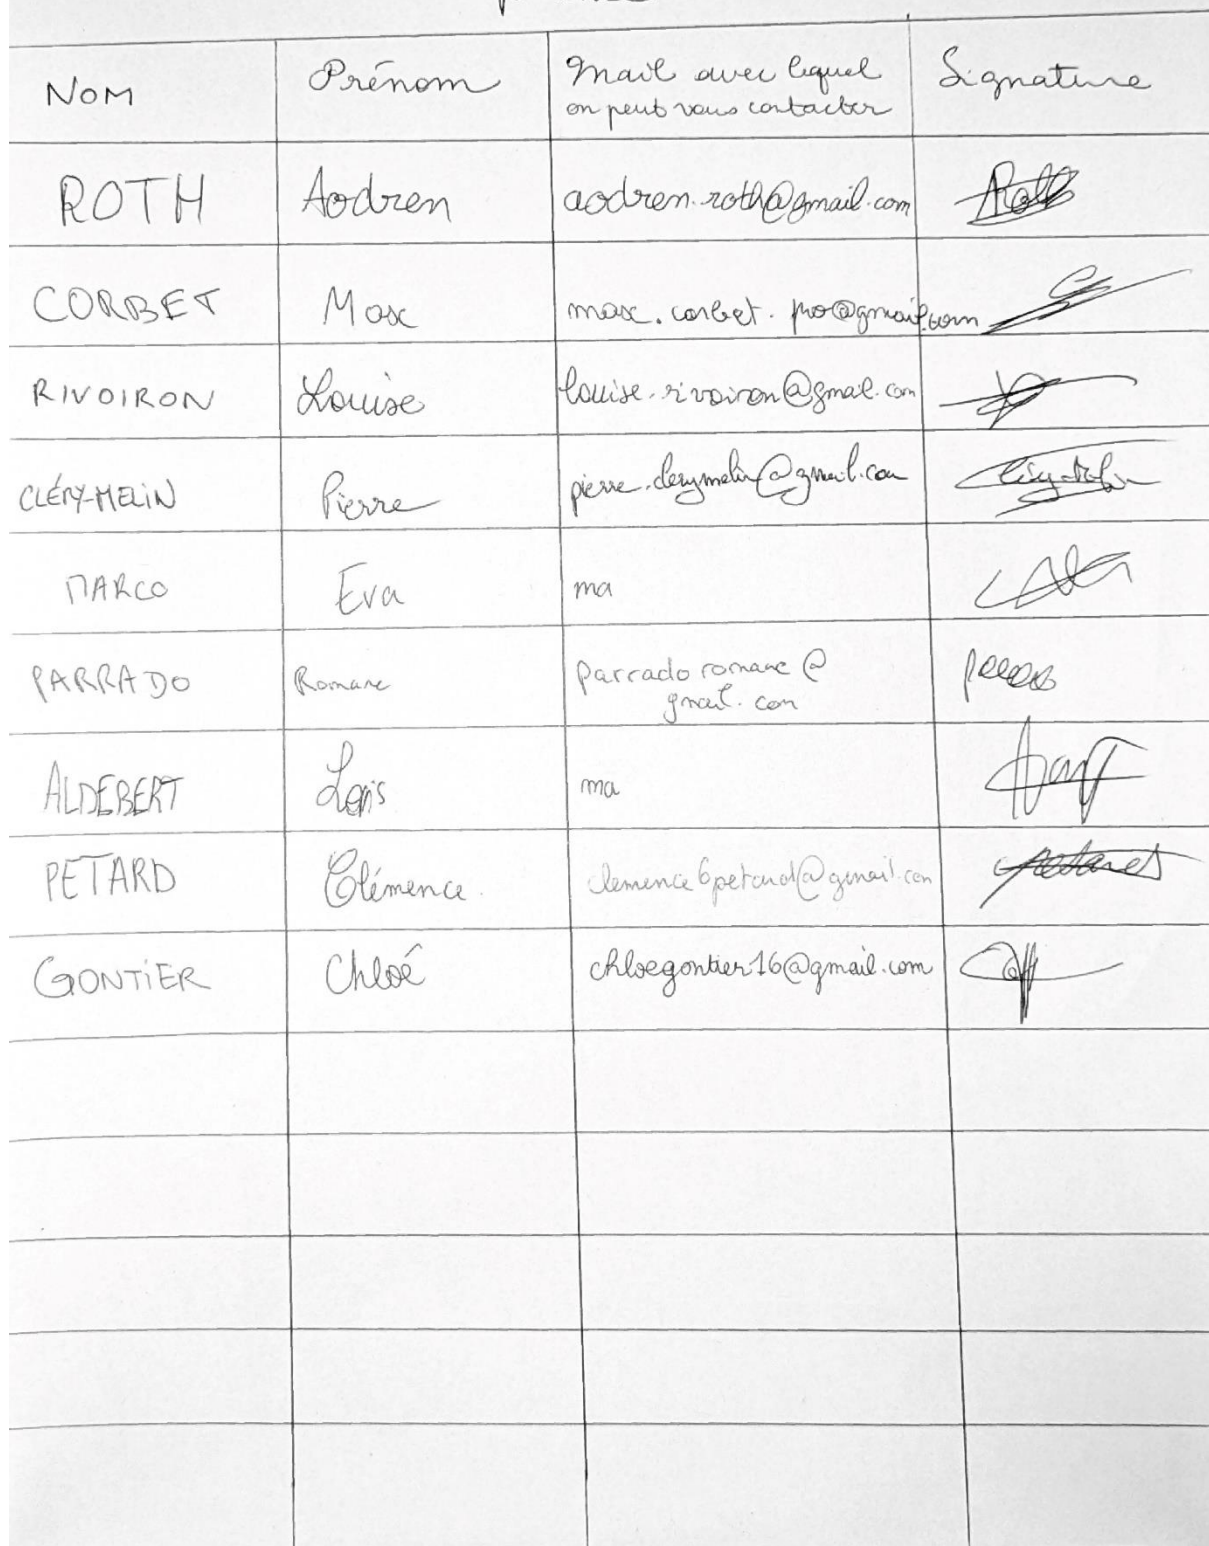 NOM Prénom Mail avec lequel Signature
on peut vous contacter
ROTH Aodren aodren.roth@gmail.com Roth
CORBET Max max.corbet.pro@gmail.com
RIVOIRON Louise louise.rivoiron@gmail.com
CLÉRY-MELIN Pierre pierre.clerymelin@gmail.com
MARCO Eva ma
PARRADO Romane parradoromane@
gmail.com
ALDEBERT Loris ma
PETARD Clémence. clemence6petard@gmail.com
GONTIER Chloé chloegontier16@gmail.com